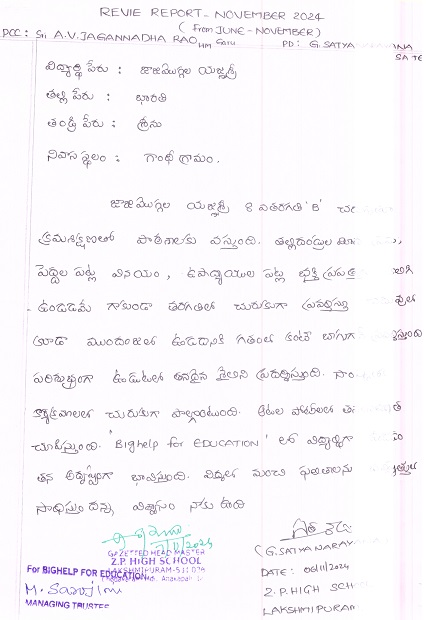 REVIE REPORT - NOVEMBER 2024
( From JUNE - NOVEMBER)
PCC : Sri A.V.JAGANNADHA RAO HM Garu PD : G. SATYA
విద్యార్థి పేరు : జాజిమొగ్గల యజ్ఞశ్రీ
తల్లి పేరు : భారతి
తండ్రి పేరు : శ్రీను
నివాస స్థలం : గాంధీ గ్రామం.
జాజిమొగ్గల యజ్ఞశ్రీ 8 వ తరగతి 'B'
క్రమశిక్షణతో పాఠశాలకు వస్తుంది. తల్లిదండ్రుల
పెద్దల పట్ల వినయం, ఉపాధ్యాయుల పట్ల భక్తి
ఉండడమే గాకుండా తరగతిలో చురుకుగా
కూడా ముందంజలో ఉండడానికి గతంలో కంటే బాగుగా
పరిశుభ్రంగా ఉండుటలో తనదైన శైలిని ప్రదర్శిస్తుంది.
కార్యక్రమాలలో చురుకుగా పాల్గొంటుంది. ఆటల పోటీలలో
చూపిస్తుంది. 'Bighelp for EDUCATION' లో విద్యార్థిగా
తన అదృష్టంగా భావిస్తుంది. విద్యలో మంచి ఫలితాలను
సాధిస్తుందన్న విశ్వాసం నాకు ఉంది
GAZETTED HEAD MASTER
Z.P. HIGH SCHOOL
LAKSHMIPURAM-531
For BIGHELP FOR EDUCATION
MANAGING TRUSTEE
( G. SATYANARAY
DATE : 06/11/2024
Z.P. HIGH SCH
LAKSHMIPURAM